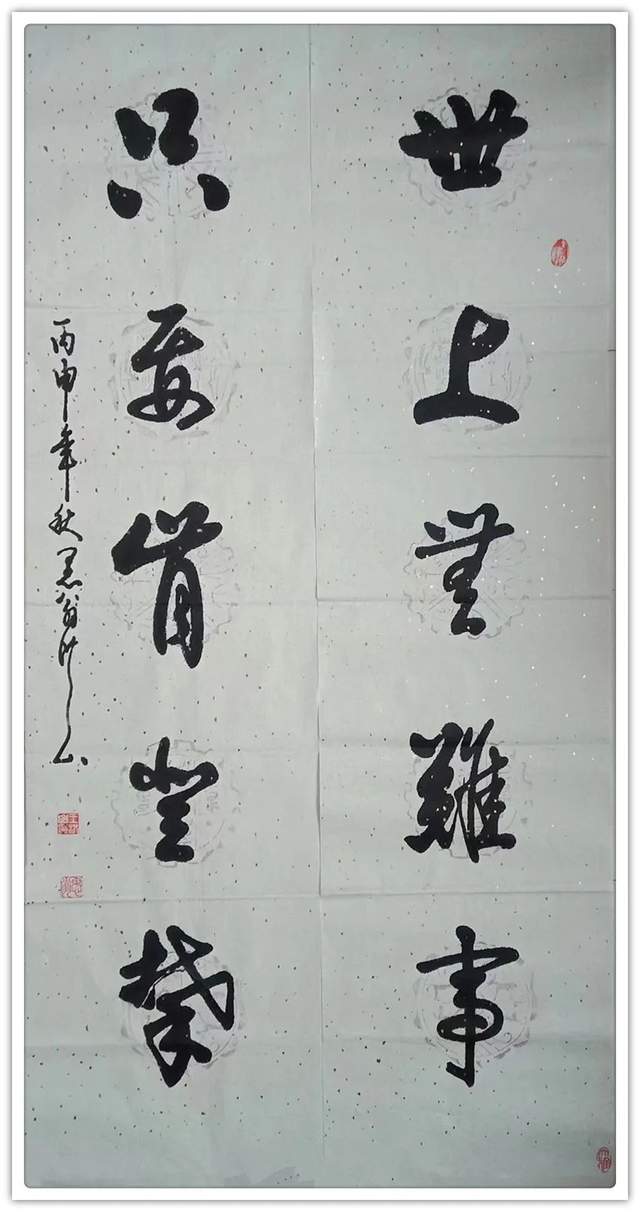 世上無難事
只要肯登攀
丙申年秋